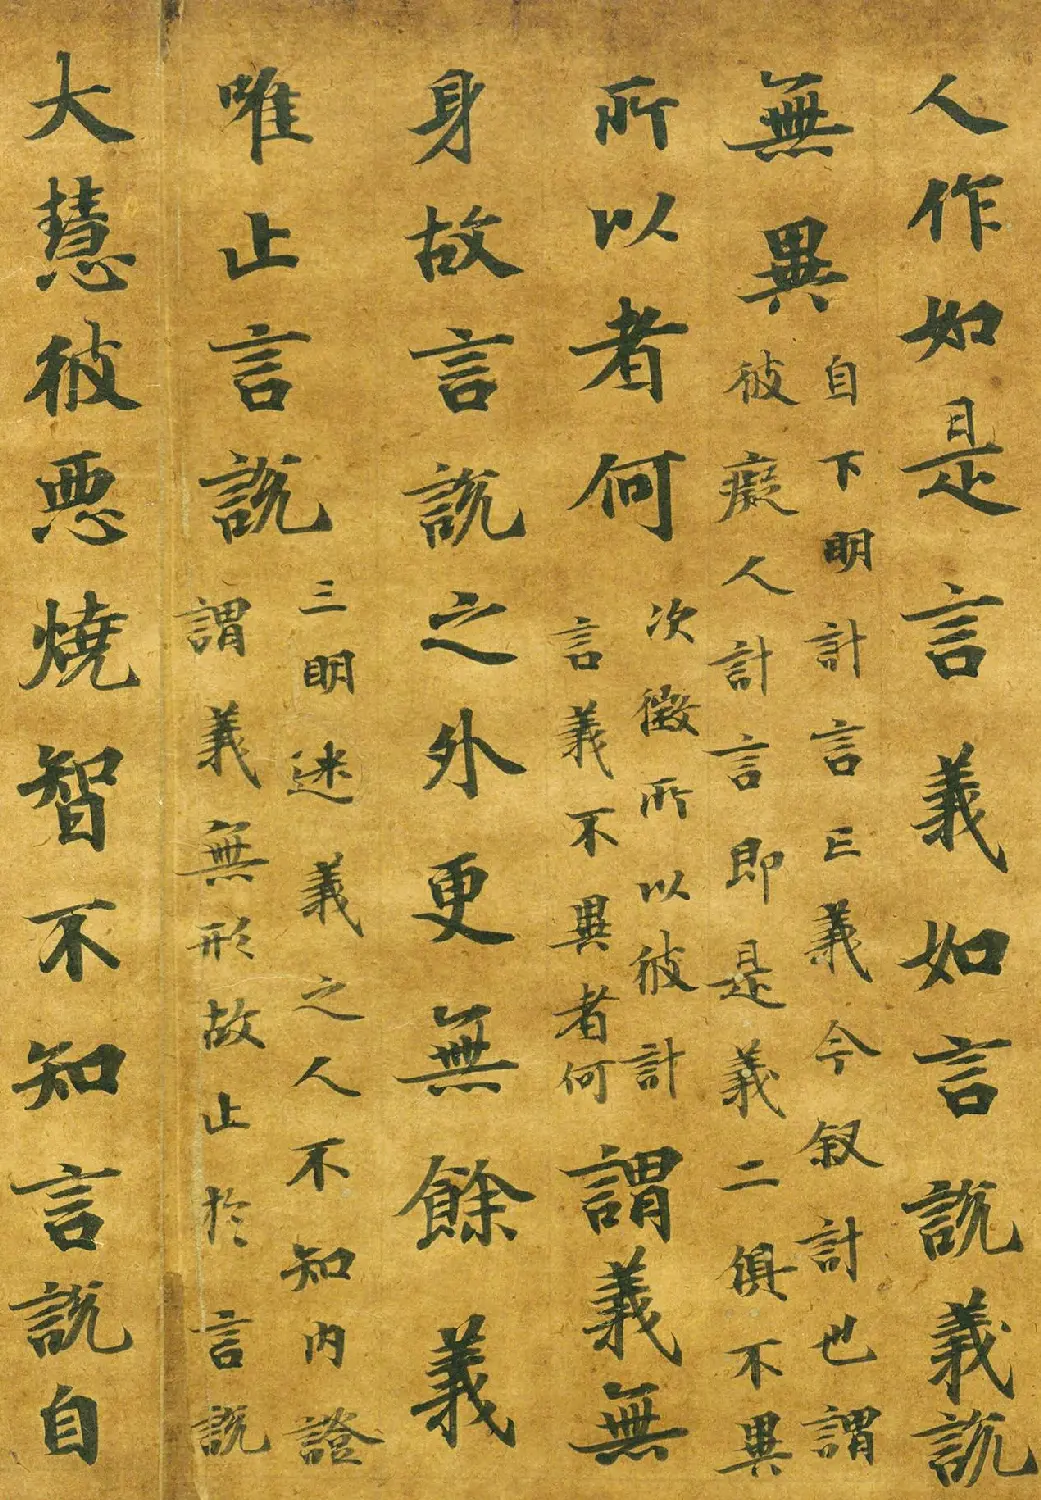 人作如是言義如言說義說
無異
自下明計言亡義今叙計也謂
彼癡人計言即是義二俱不異
所以者何
次徵所以彼計
言義不異者何
謂義無
身故言說之外更無餘義
唯止言說
三明迷義之人不知內證
謂義無形故止於言說
大慧彼惡燒智不知言說自